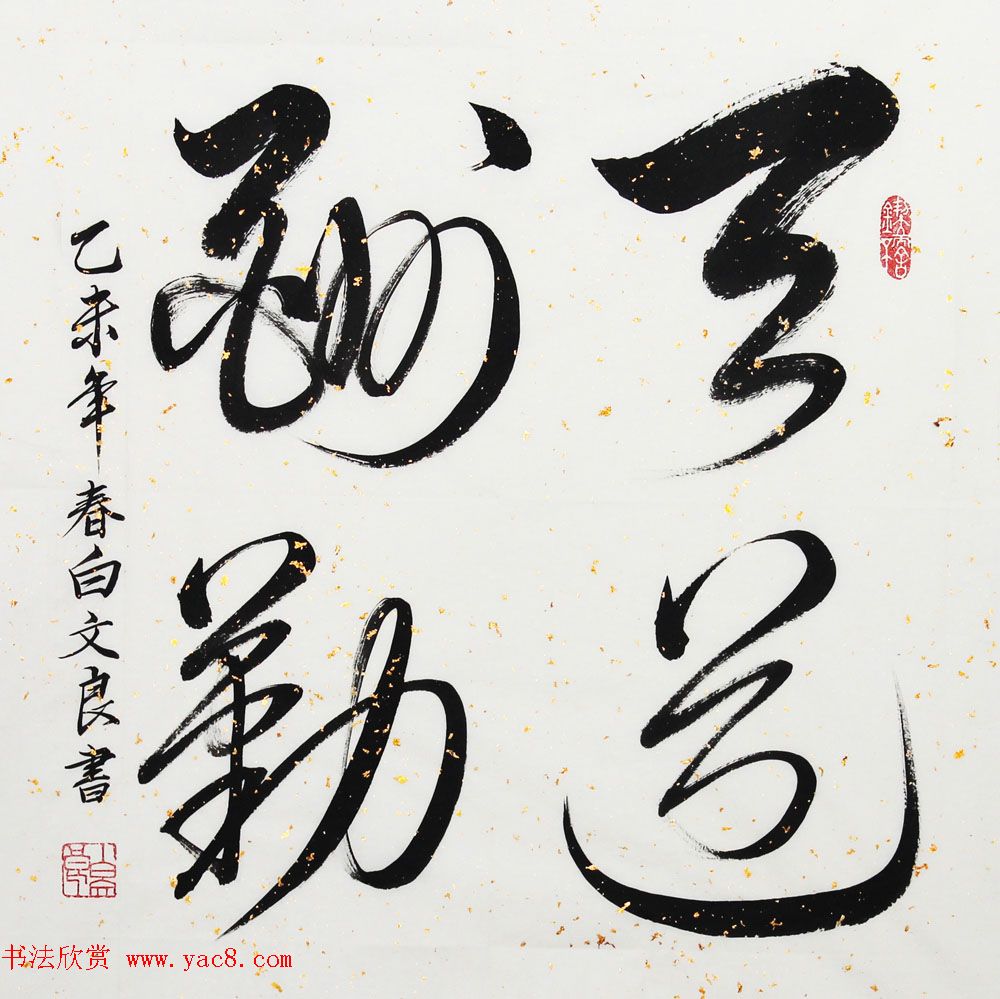 天道
酬勤
乙未年春白文良書
书法欣赏 www.yac8.com